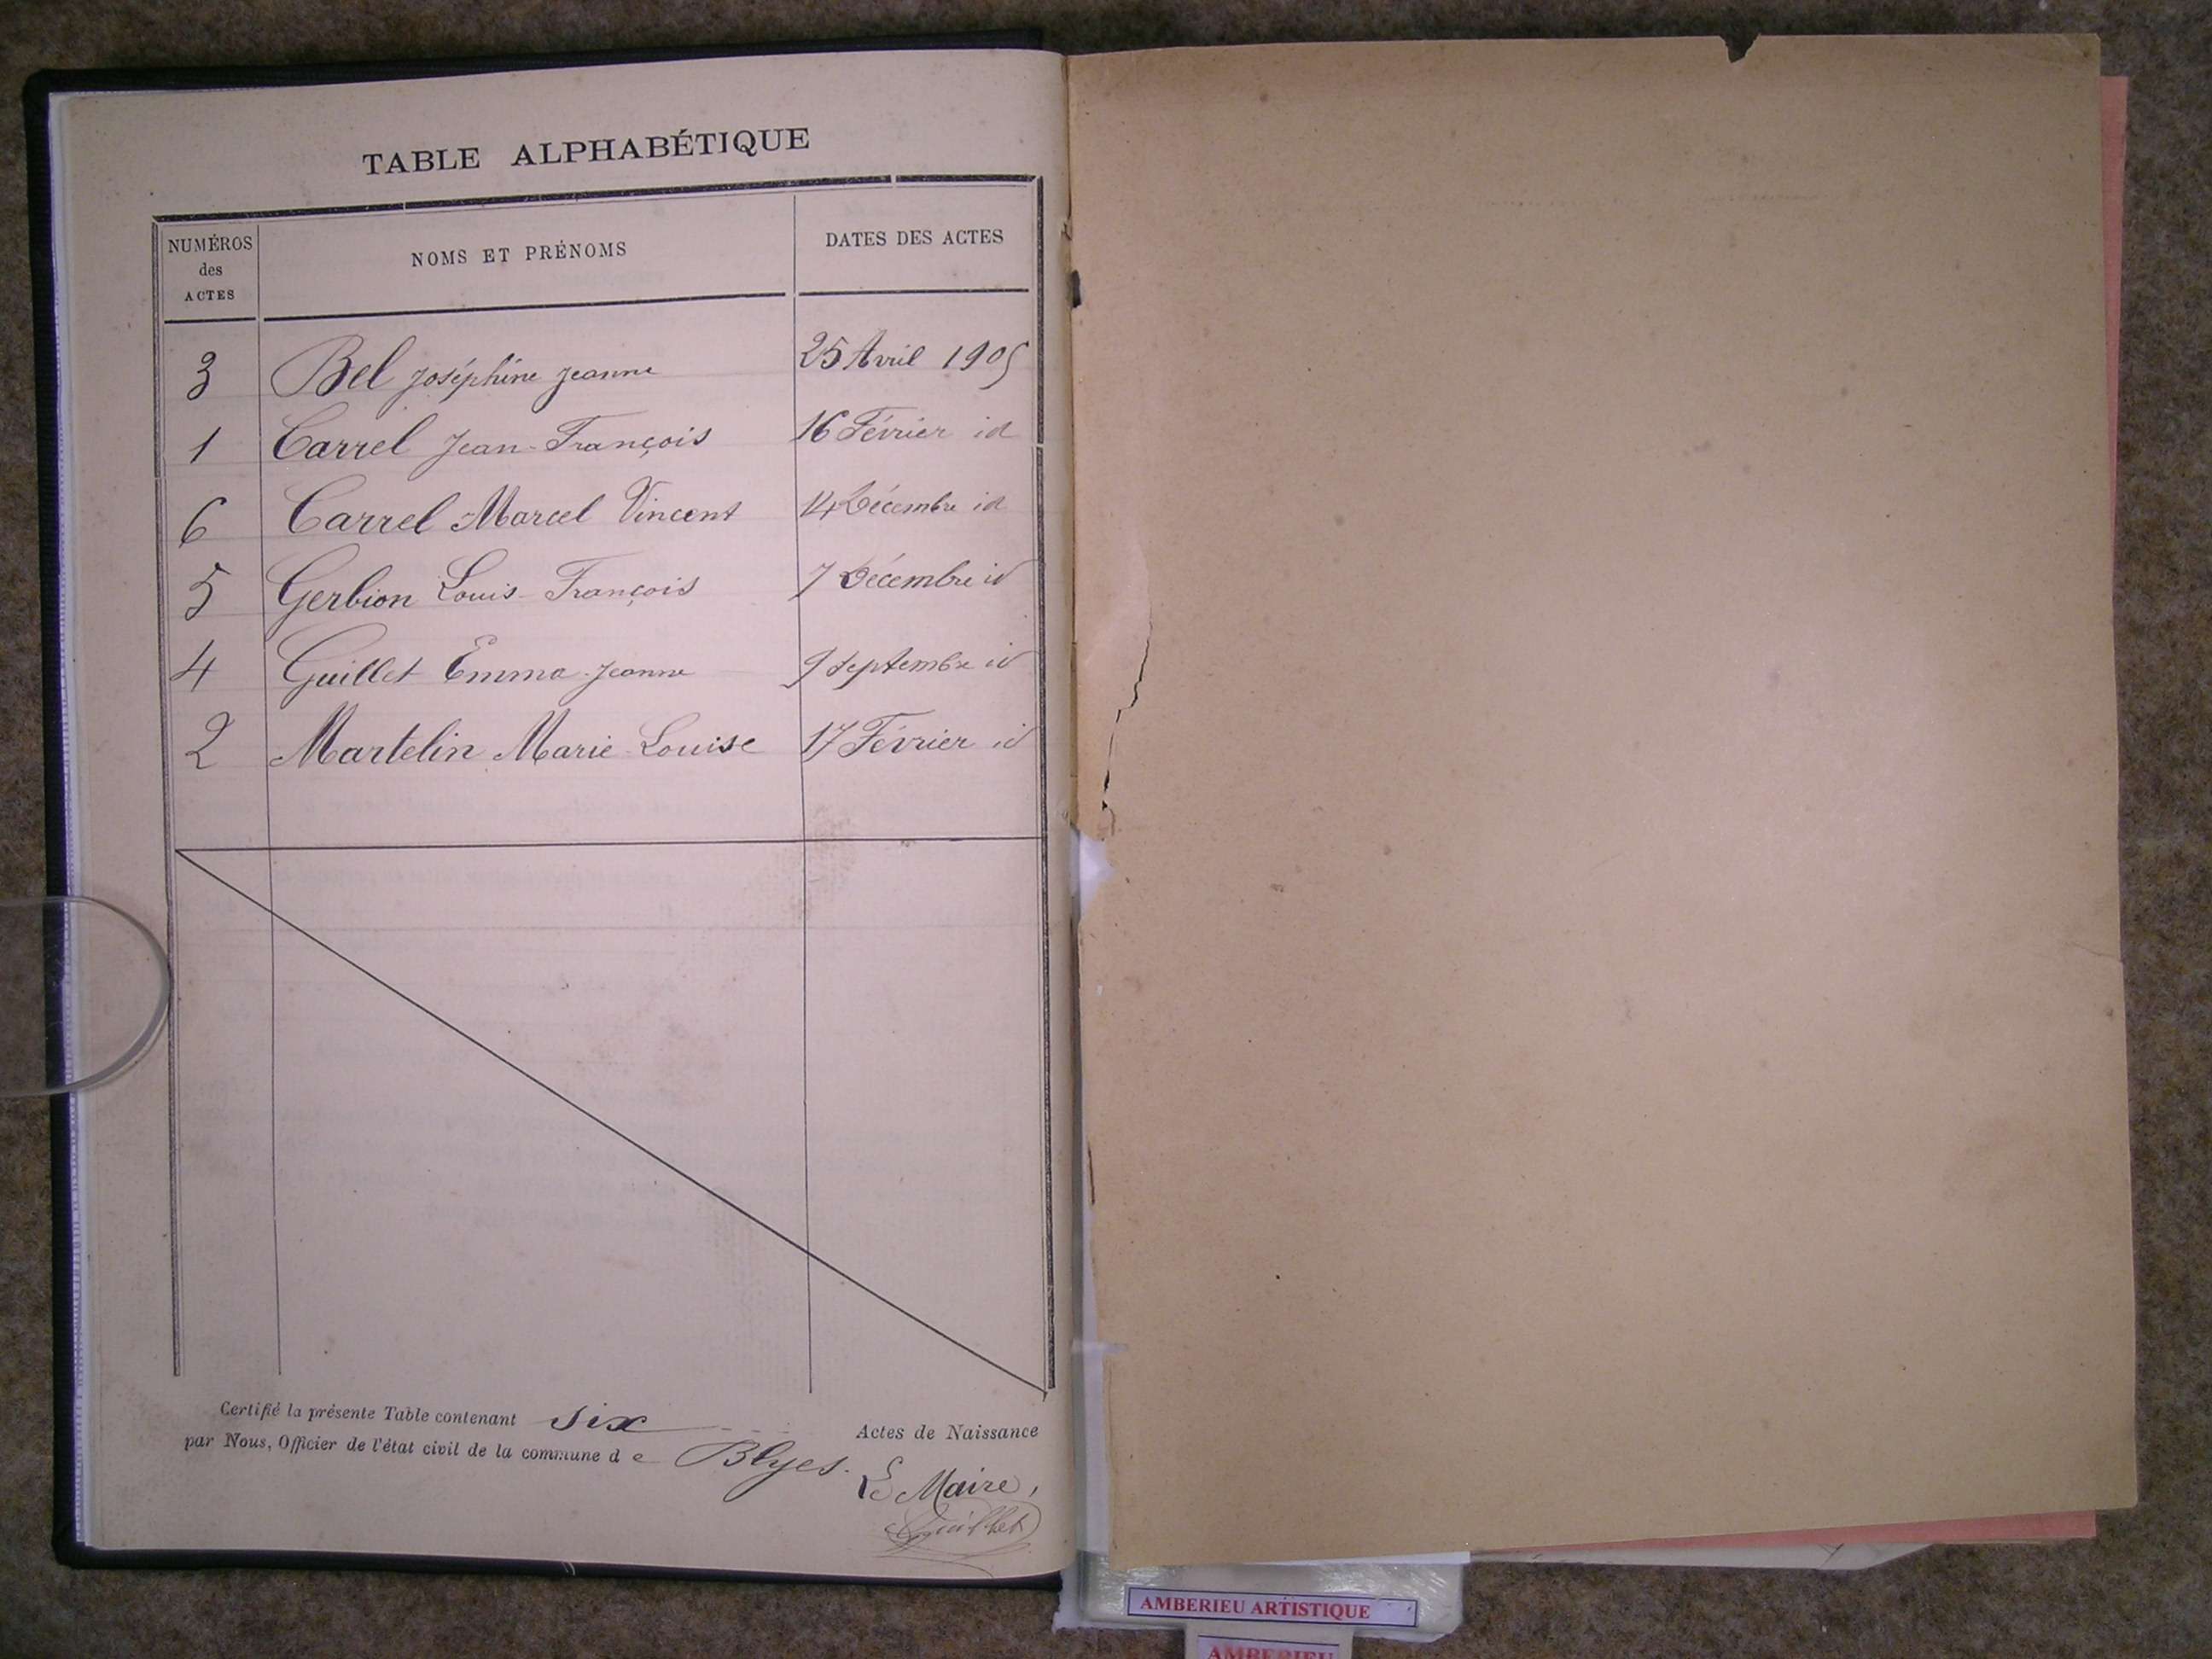 TABLE ALPHABÉTIQUE
NUMÉROS des ACTES NOMS ET PRÉNOMS DATES DES ACTES
3 Bel Joséphine Jeanne 25 Avril 1905
1 Carrel Jean-François 16 Février id
6 Carrel Marcel Vincent 14 Décembre id
5 Gerbion Louis-François 7 Décembre id
4 Guillet Emma-Jeanne 9 Septembre id
2 Martelin Marie-Louise 17 Février id
Certifié la présente Table contenant six Actes de Naissance
par Nous, Officier de l'état civil de la commune de Blyes.
Le Maire,
Guillet
AMBERIEU ARTISTIQUE
AMBERIEU